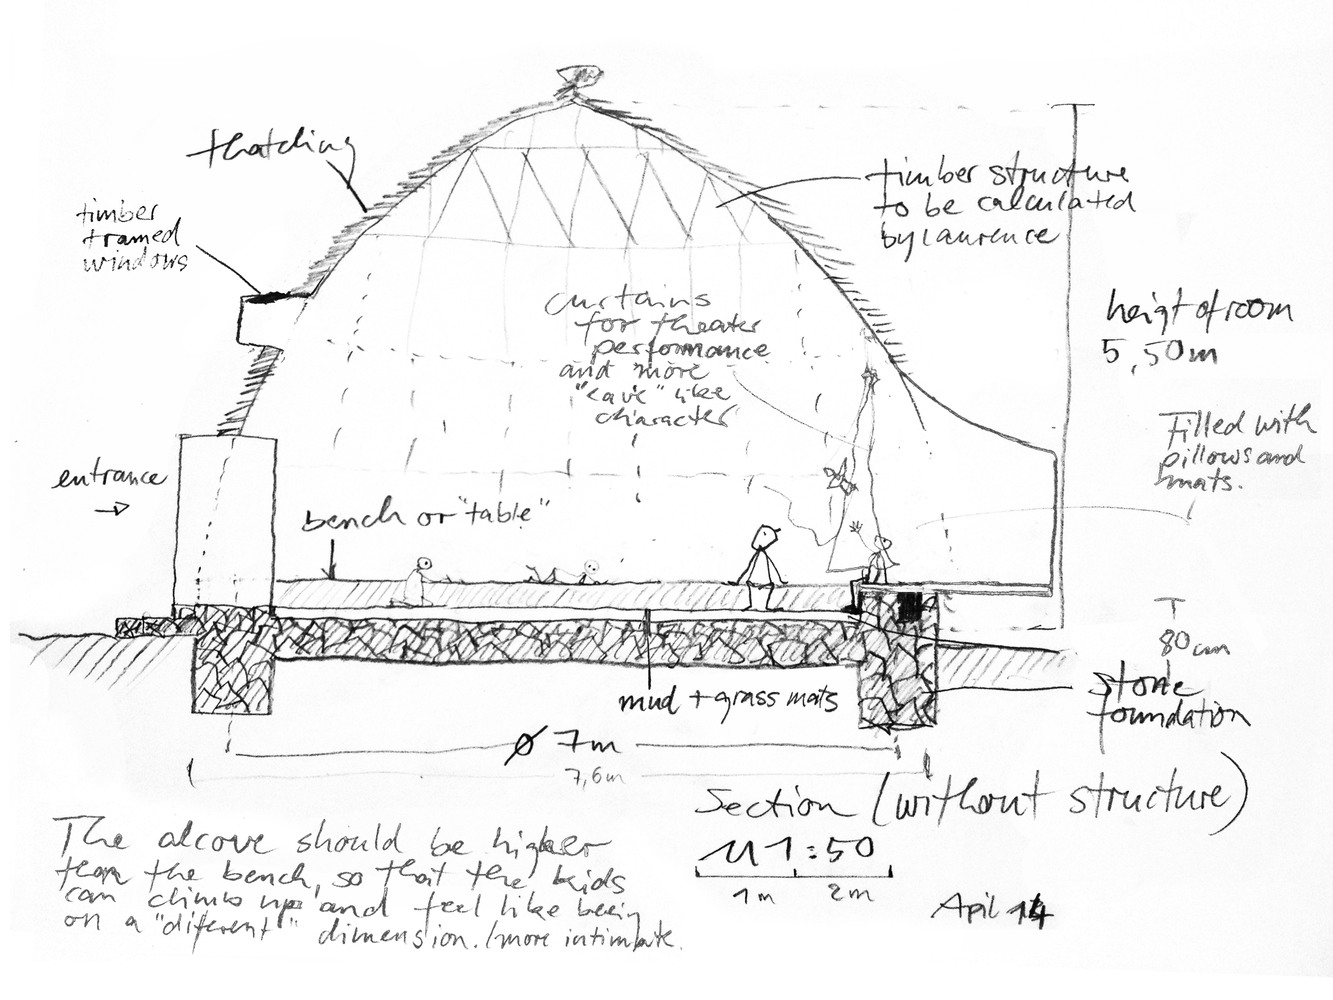 thatching
timber
framed
windows
entrance
bench or "table"
curtains
for theater
performance
and more
"cave" like
character
timber structure
to be calculated
by Laurence
heigt of room
5,50m
Filled with
pillows and
mats.
80cm
stone
foundation
mud + grass mats
ø 7m
7,6m
Section (without structure)
M 1:50
1m 2m
April 14
The alcove should be higher
than the bench, so that the kids
can climb up and feel like being
on a "diferent" dimension. /more intimate.